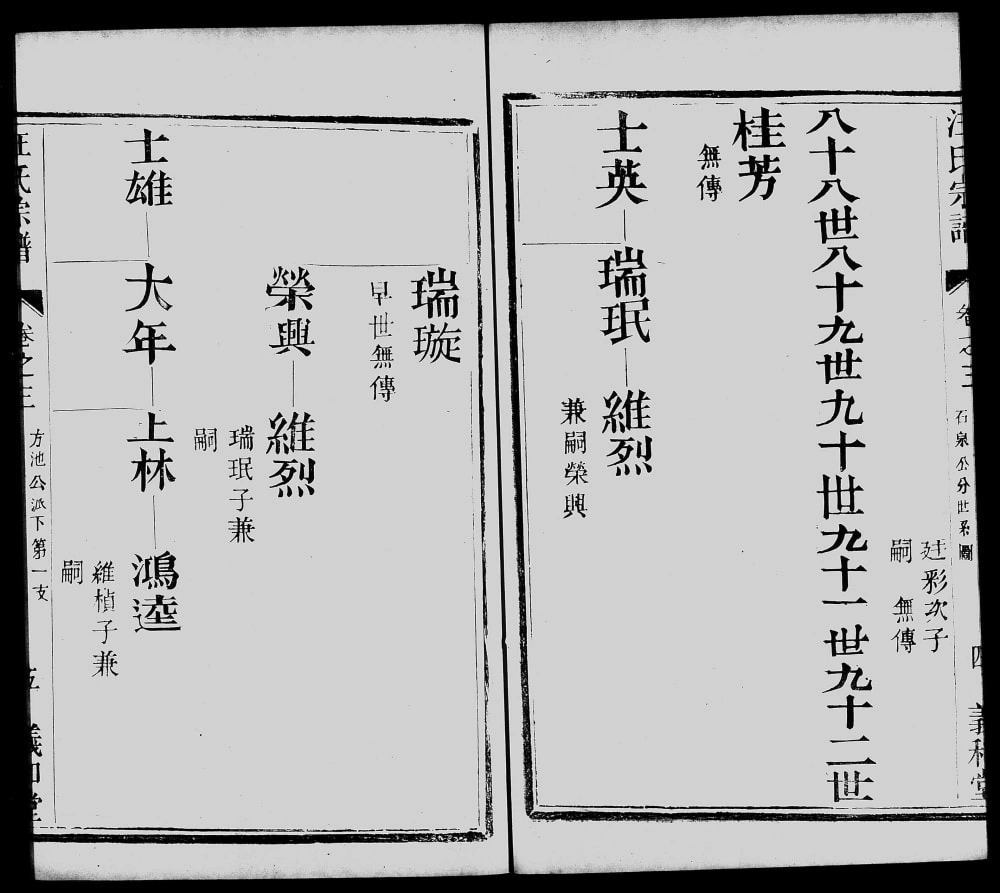 汪氏宗譜 卷之三 石泉公分世系圖 四 義和堂
廷彩次子
嗣 無傳
八十八世八十九世九十世九十一世九十二世
桂芳
無傳
士英 瑞珉 維烈
兼嗣榮興
瑞璇
早世無傳
榮興 維烈
瑞珉子兼
嗣
士雄 大年 上林 鴻逵
維楨子兼
嗣
汪氏宗譜 卷之三 方池公派下第一支 五 義和堂